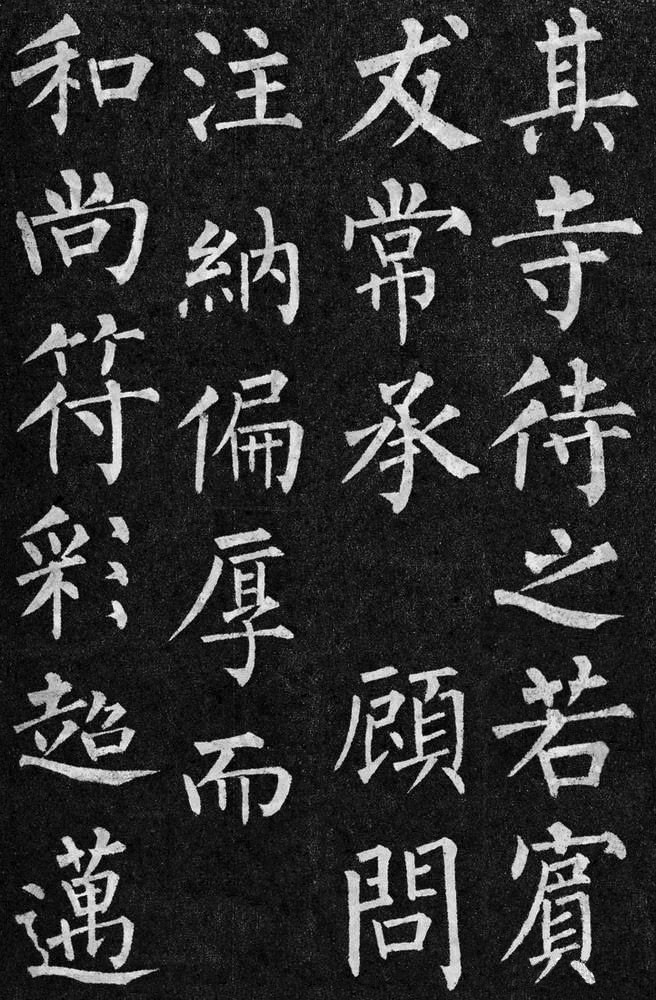 其寺待之若賓
友常承 顧問
注納偏厚而
和尚符彩超邁